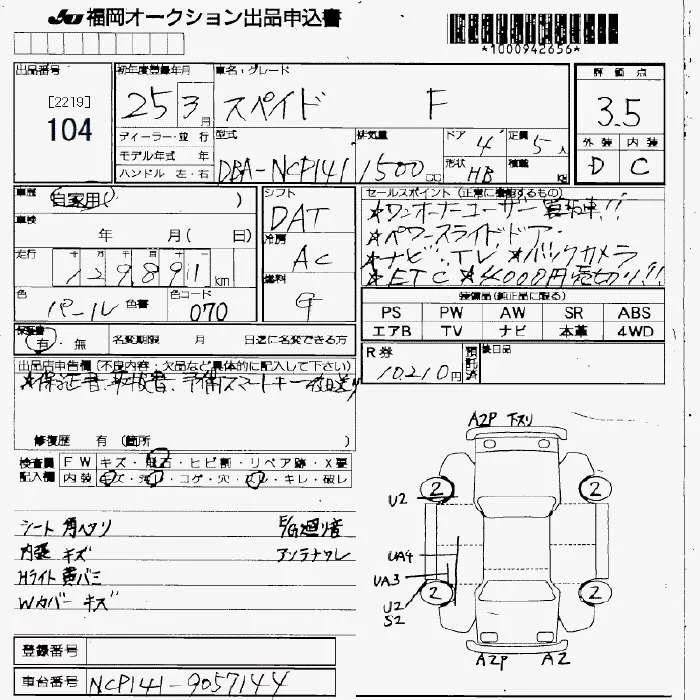 JU 福岡オークション出品申込書
*1000942656*
出品番号
[2219]
104
初年度登録年月
25 3月
車名・グレード
スペイド F
評価点
3.5
外装 内装
D C
ディーラー・並行
モデル年式 年
ハンドル 左・右
型式
DBA-NCP141
排気量
1500cc
ドア
4
形状
HB
定員
5人
積載
KG
車歴
自家用( )
車検
年 月( 日)
走行
129891km
色
パール
色替
色コード
070
シフト
DAT
冷房
AC
燃料
G
セールスポイント (正常に機能するもの)
★ワンオーナーユーザー買取車!!
★パワースライドドア・
★ナビ・TV ★バックカメラ
★ETC ★4000円売切り!!!
装備品(純正品に限る)
PS PW AW SR ABS
エアB TV ナビ 本革 4WD
保証書
有・無
名変期限 月 日迄に名変できる方
R券
10210円
預託済
後日品
出品店申告欄 (不良内容・欠品など具体的に記入して下さい)
★保証書、取扱書、予備スマートキー後日送り
修復歴 有 (箇所 )
検査員記入欄
FW キズ・飛石・ヒビ割・リペア跡・X要
内装 キズ・汚レ・コゲ・穴・ キレ・破レ
シート 角ヘタリ
E/G廻り音
内張 キズ
アンテナワレ
Hライト 黄バミ
Wカバー キズ
A2P 下スリ
2 2
U2
UA4
UA3
2 2
U2
S2
A2P A2
登録番号
車台番号
NCP141-9057144